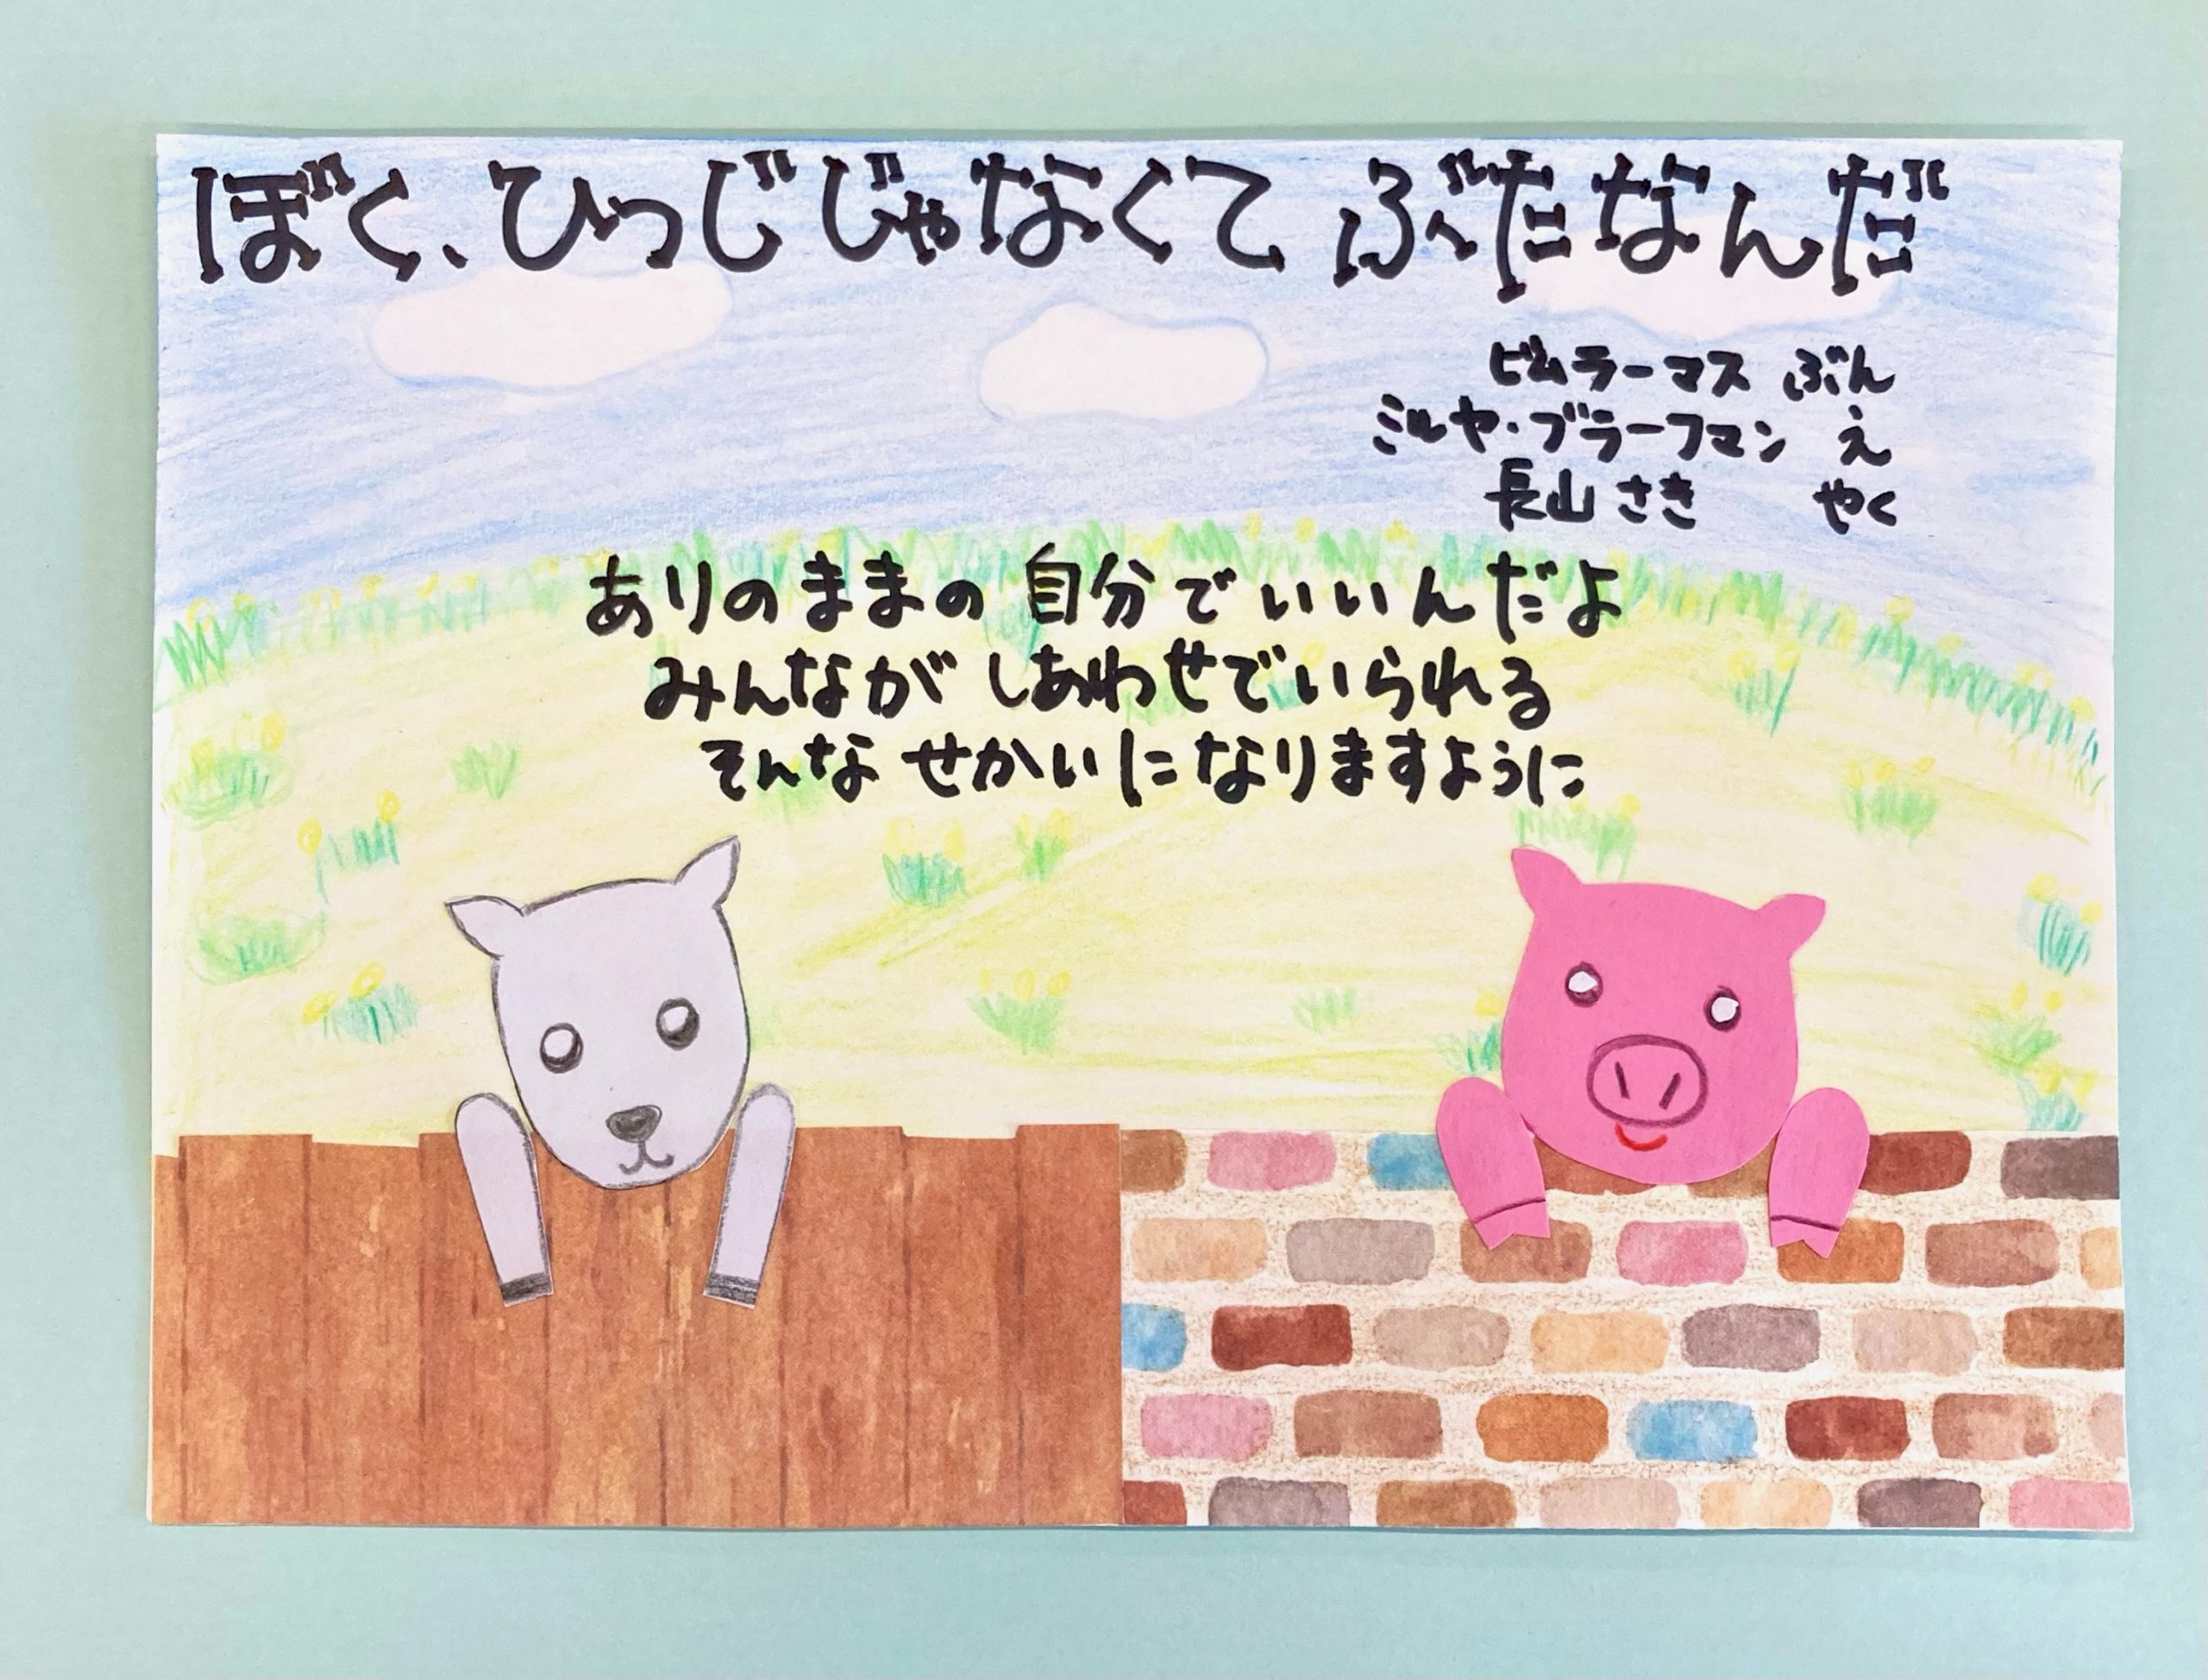 ぼく、ひつじじゃなくて ぶたなんだ
ビムラーマス ぶん
ミルヤ・ブラーフマン え
長山 さき やく
ありのままの 自分でいいんだよ
みんなが しあわせでいられる
そんな せかいになりますように